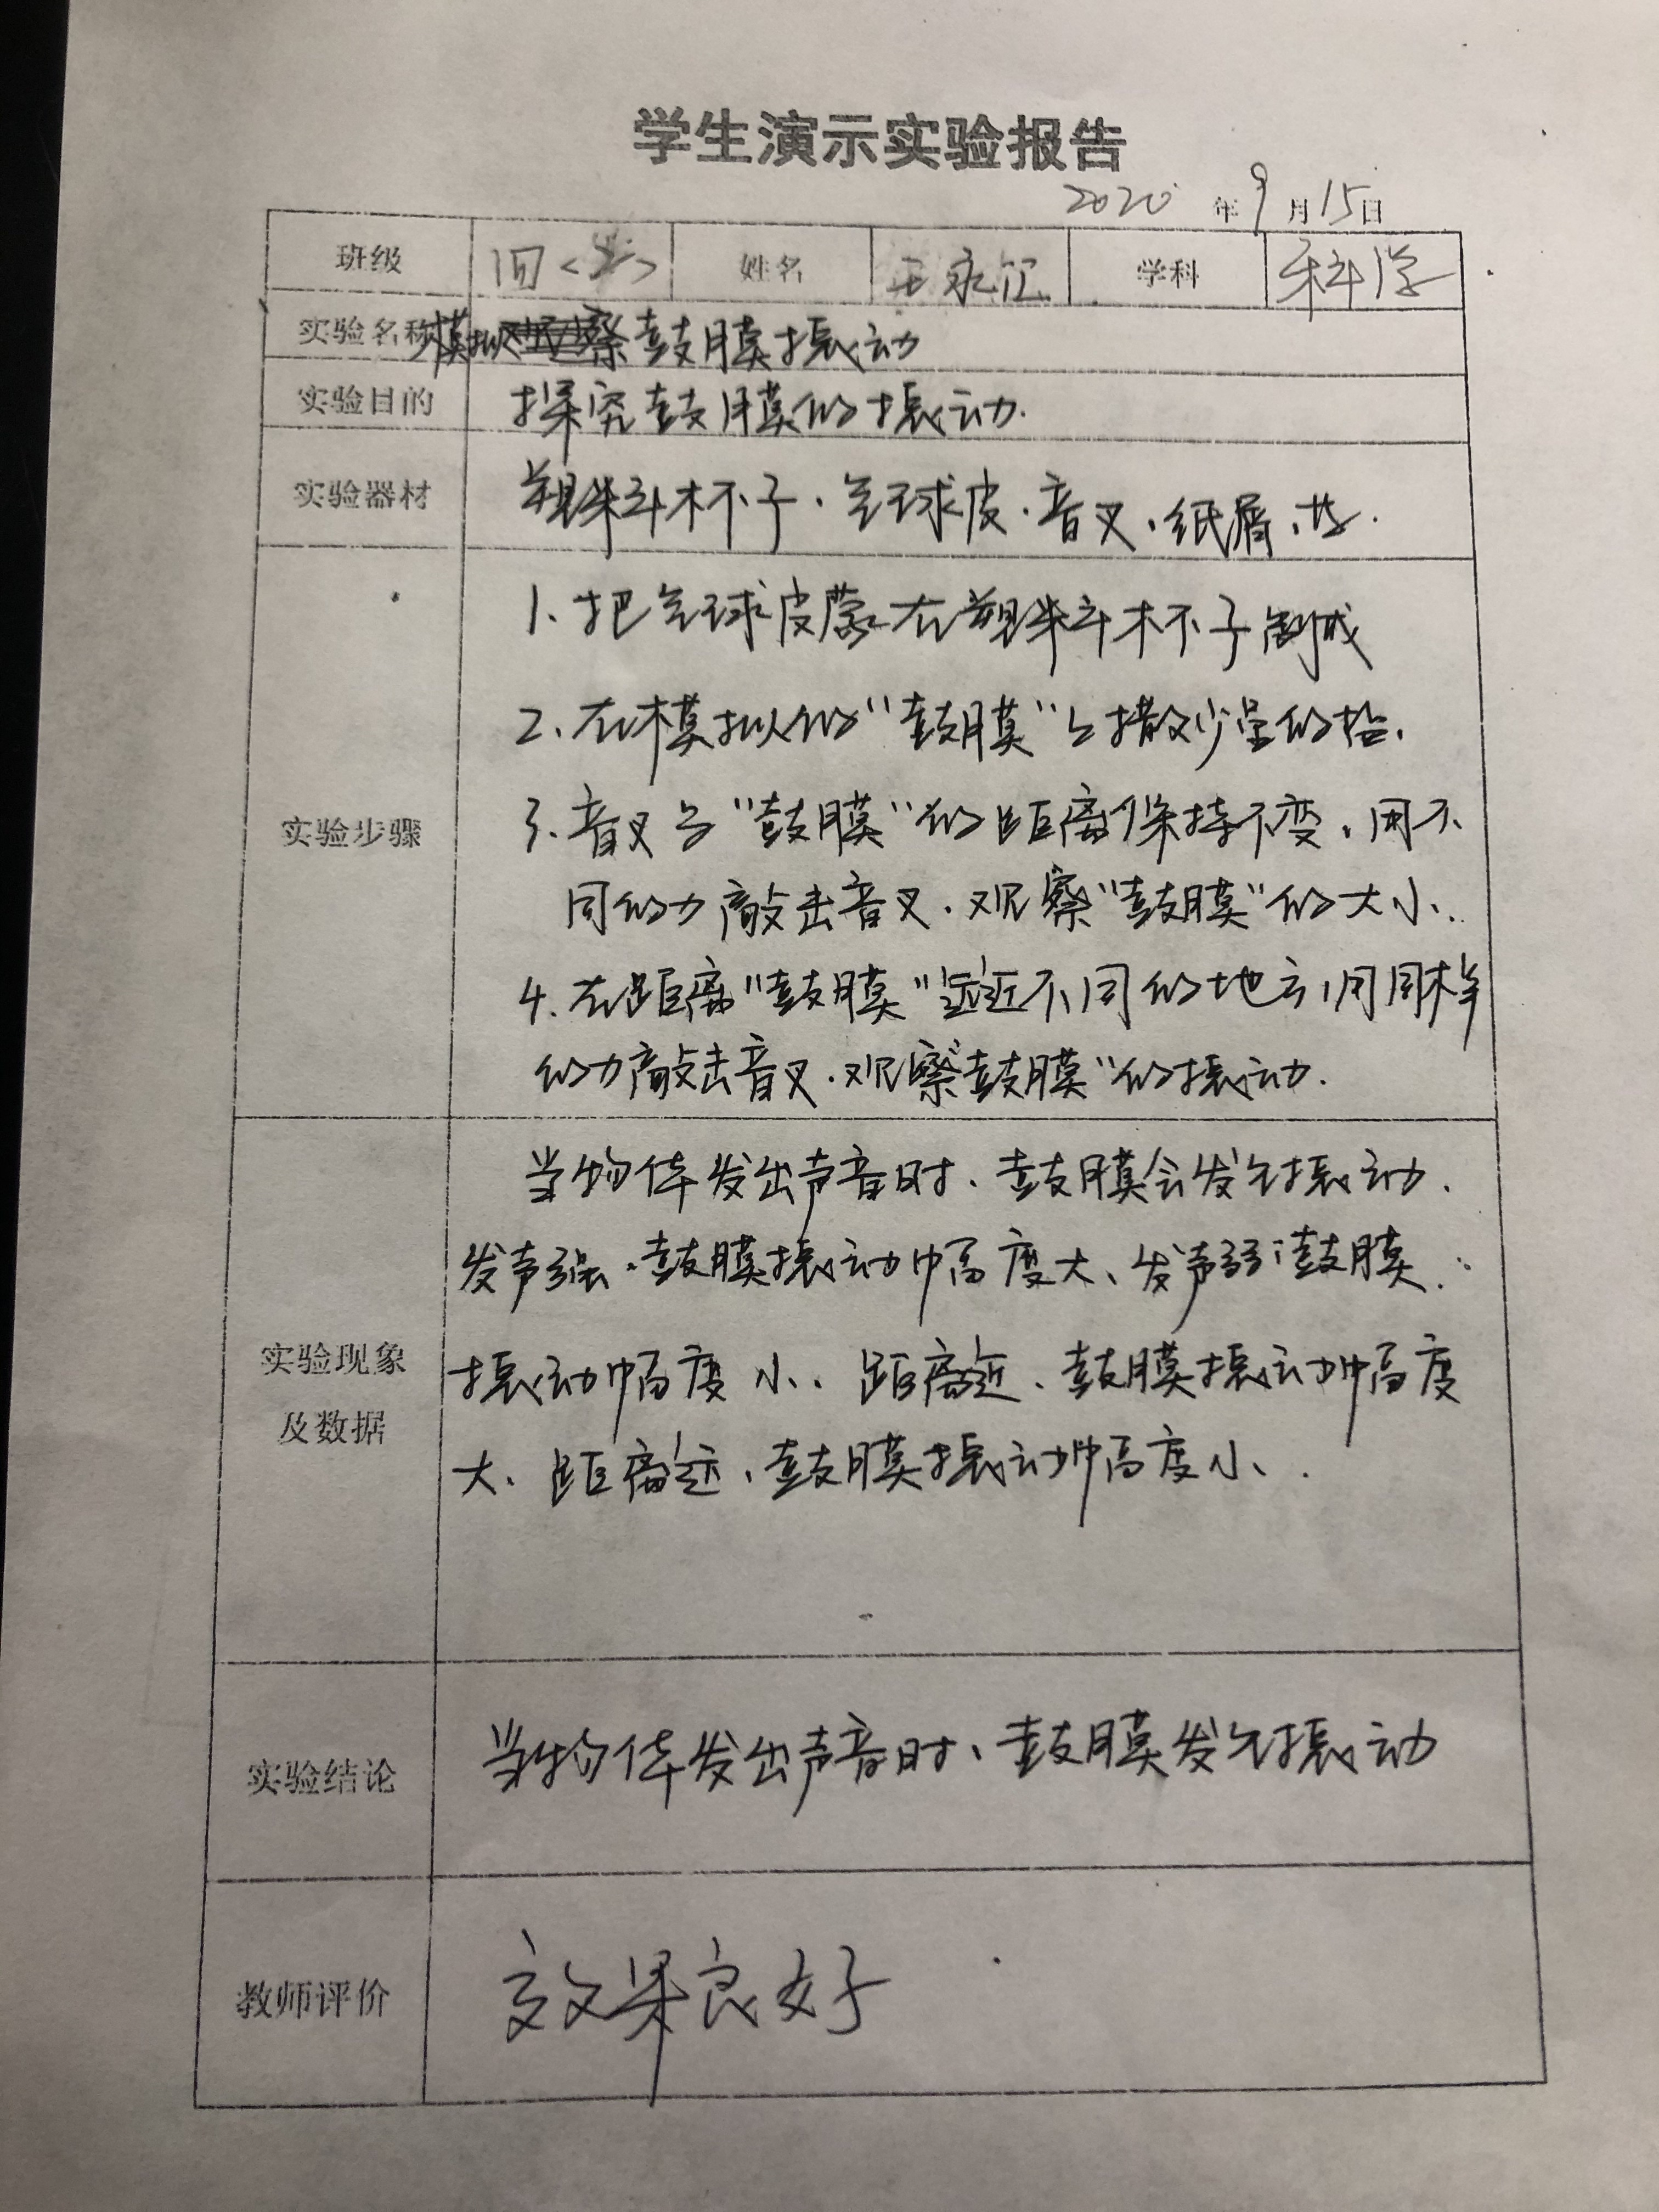 学生演示实验报告
2020年9月15日
班级 四 姓名 王永江 学科 科学
实验名称 模拟鼓膜振动
实验目的 探究鼓膜的振动.
实验器材 塑料杯子、气球皮、音叉、纸屑、
1、把气球皮蒙在塑料杯子制成
2、在模拟的“鼓膜”上撒少量的
3、音叉与“鼓膜”的距离保持不变、用不
实验步骤
同的力敲击音叉、观察“鼓膜”的大小、
4、在距离“鼓膜”远近不同的地方,用同样
的力敲击音叉、观察“鼓膜”的振动.
当物体发出声音时、鼓膜会发生振动.
发声强、鼓膜振动幅度大、发声弱、鼓膜
实验现象
及数据
振动幅度小、距离近、鼓膜振动幅度
大、距离远、鼓膜振动幅度小、
实验结论 当物体发出声音时、鼓膜发生振动
教师评价 效果良好